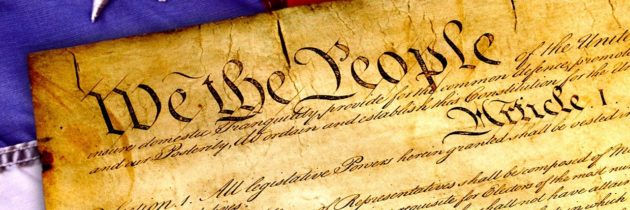 We the People of the United
insure domestic Tranquility, provide for the common defence, promote
and our Posterity, do ordain and establish this Constitution for the Un
Article I.
Section 1. All legislative Powers herein granted shall be vested in
of Representatives shall be composed of M
requisite for Electors of the most nu
shall not have attain
in which